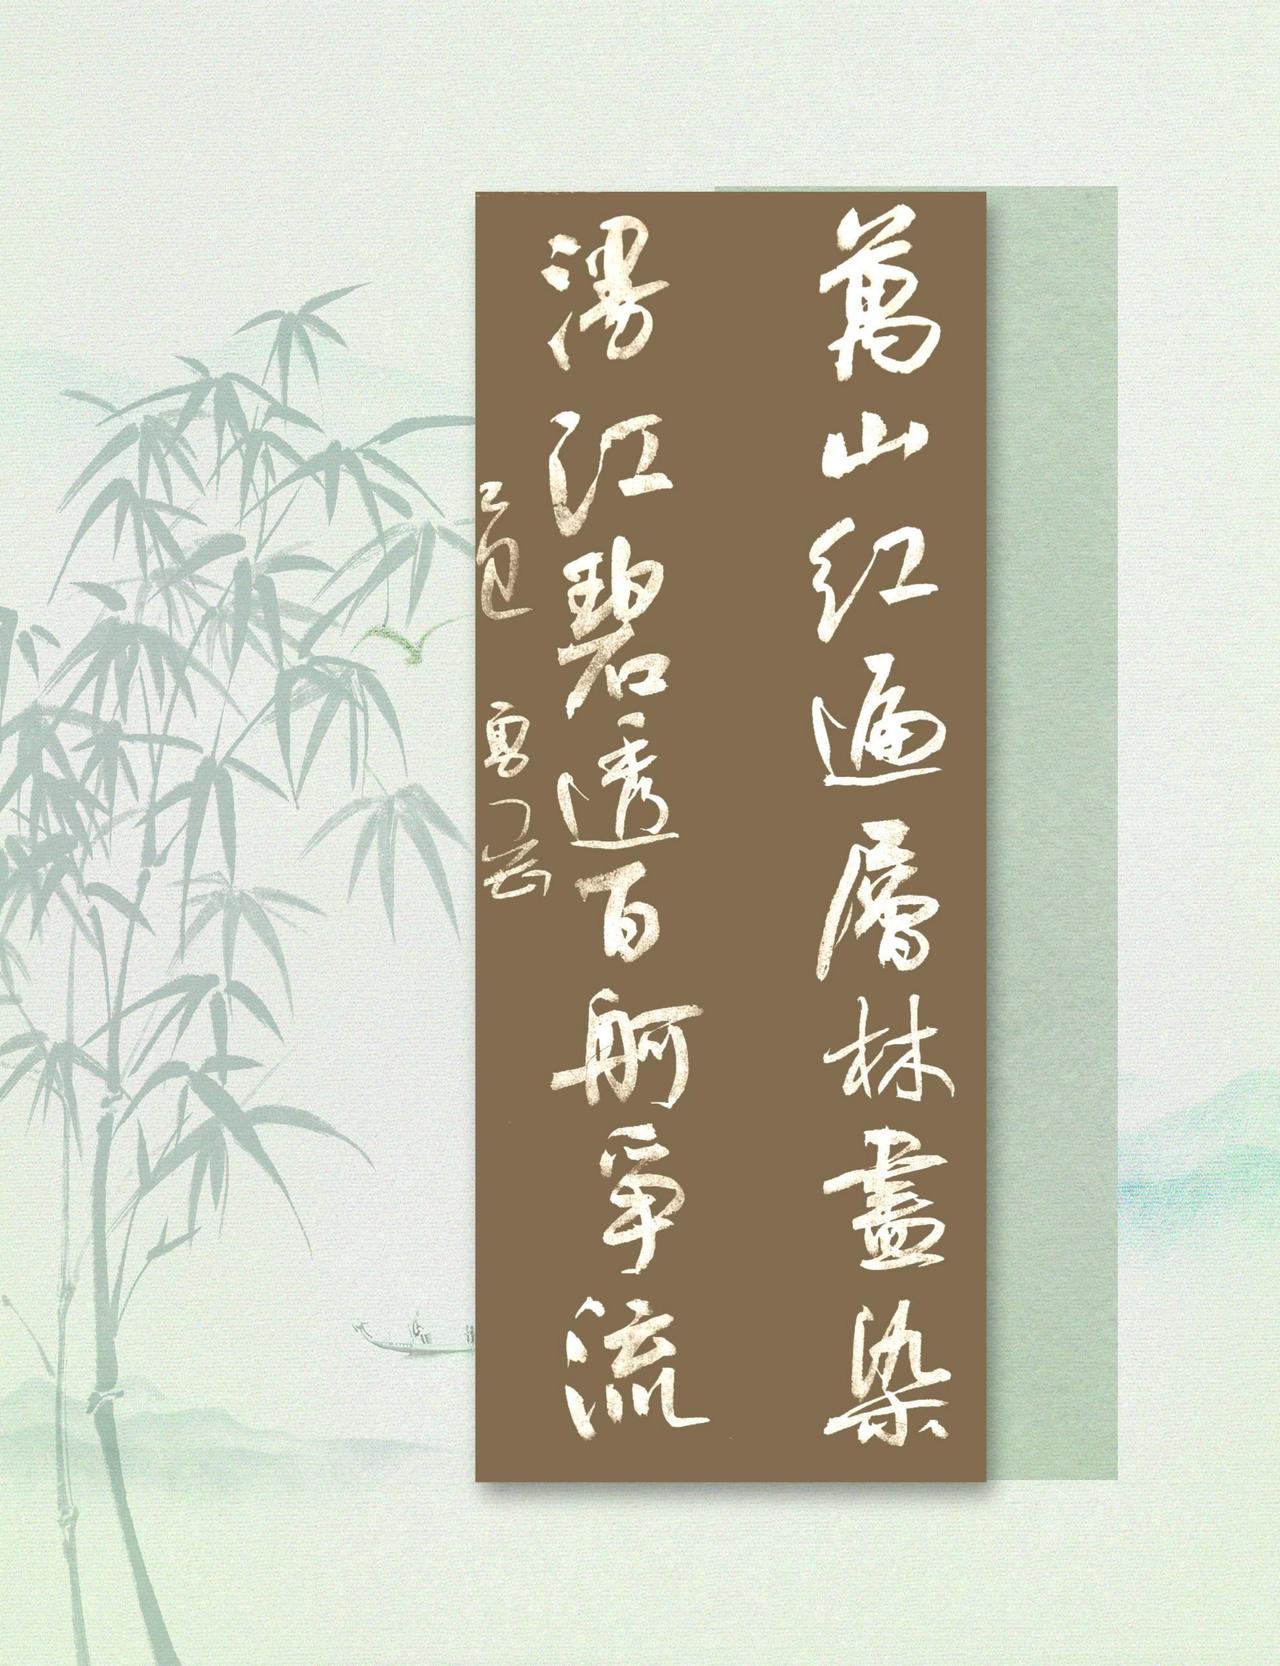 萬山红遍層林盡染
漫江碧透百舸爭流